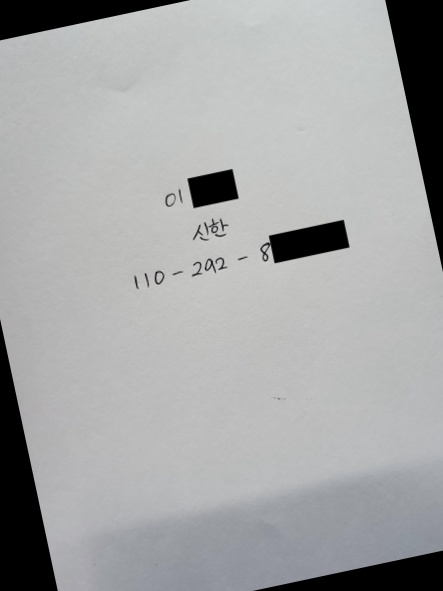 이
신한
110-292-8